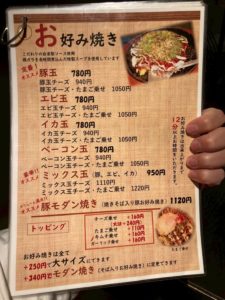 お好み焼き
こだわりの自家製ソース使用
定番!
オススメ
豚玉 780円
豚玉チーズ 940円
豚玉チーズ・たまご乗せ 1050円
エビ玉 780円
エビ玉チーズ 940円
エビ玉チーズ・たまご乗せ 1050円
イカ玉 780円
イカ玉チーズ 940円
イカ玉チーズ・たまご乗せ 1050円
ベーコン玉 780円
ベーコン玉チーズ 940円
ベーコン玉チーズ・たまご乗せ 1050円
ミックス玉(豚、エビ、イカ) 950円
ミックス玉チーズ 1110円
ミックス玉チーズ・たまご乗せ 1220円
オススメ
豚モダン焼き(焼きそば入り豚お好み焼き) 1120円
トッピング
チーズ乗せ +160円
たまご乗せ +110円
キムチ乗せ +160円
ガーリック乗せ +160円
たまご乗せ
お好み焼きは全て
+250円で大サイズにできます
+340円でモダン焼き(そば入りお好み焼き)に変更できます